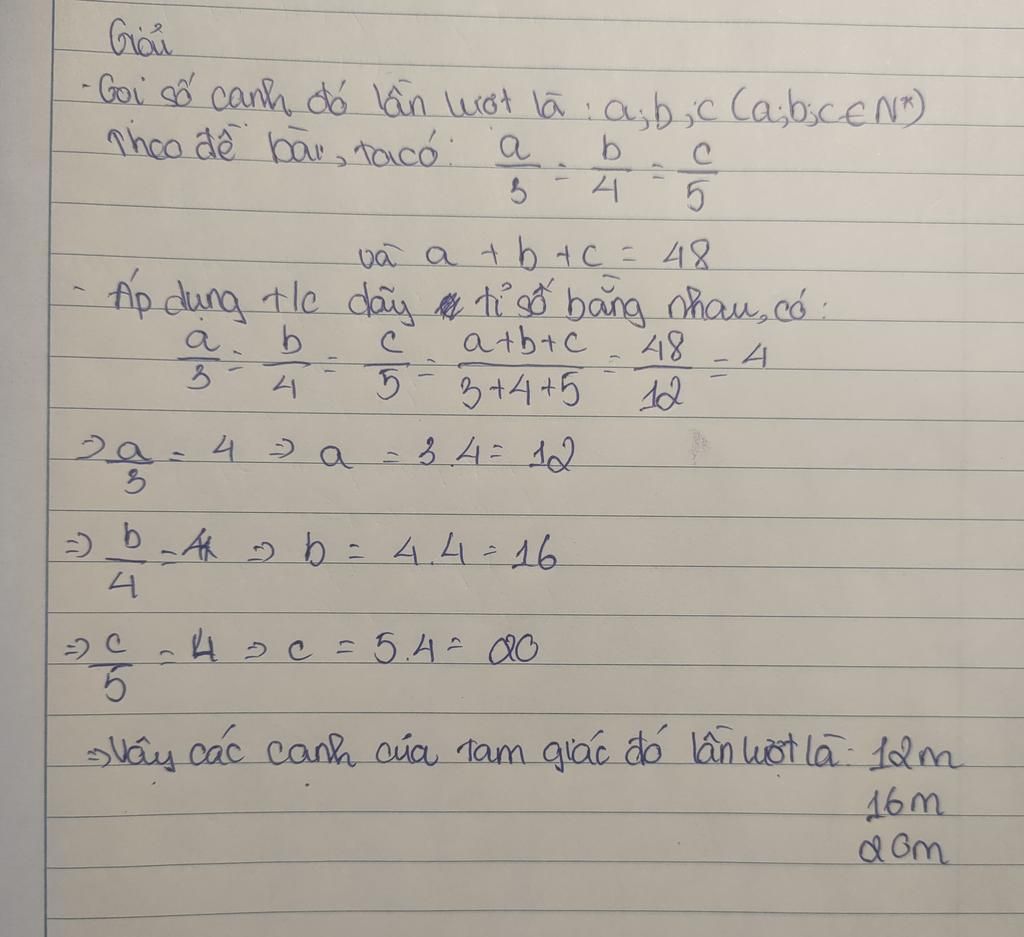 Giải
- Gọi số cạnh đó lần lượt là : a;b;c (a;b;c ∈ N*)
Theo đề bài, ta có: a/3 = b/4 = c/5
và a + b + c = 48
- Áp dụng t/c dãy tỉ số bằng nhau, có:
a/3 = b/4 = c/5 = a+b+c/3+4+5 = 48/12 = 4
=> a/3 = 4 => a = 3.4 = 12
=> b/4 = 4 => b = 4.4 = 16
=> c/5 = 4 => c = 5.4 = 20
=> Vậy các cạnh của tam giác đó lần lượt là: 12m
16m
20m